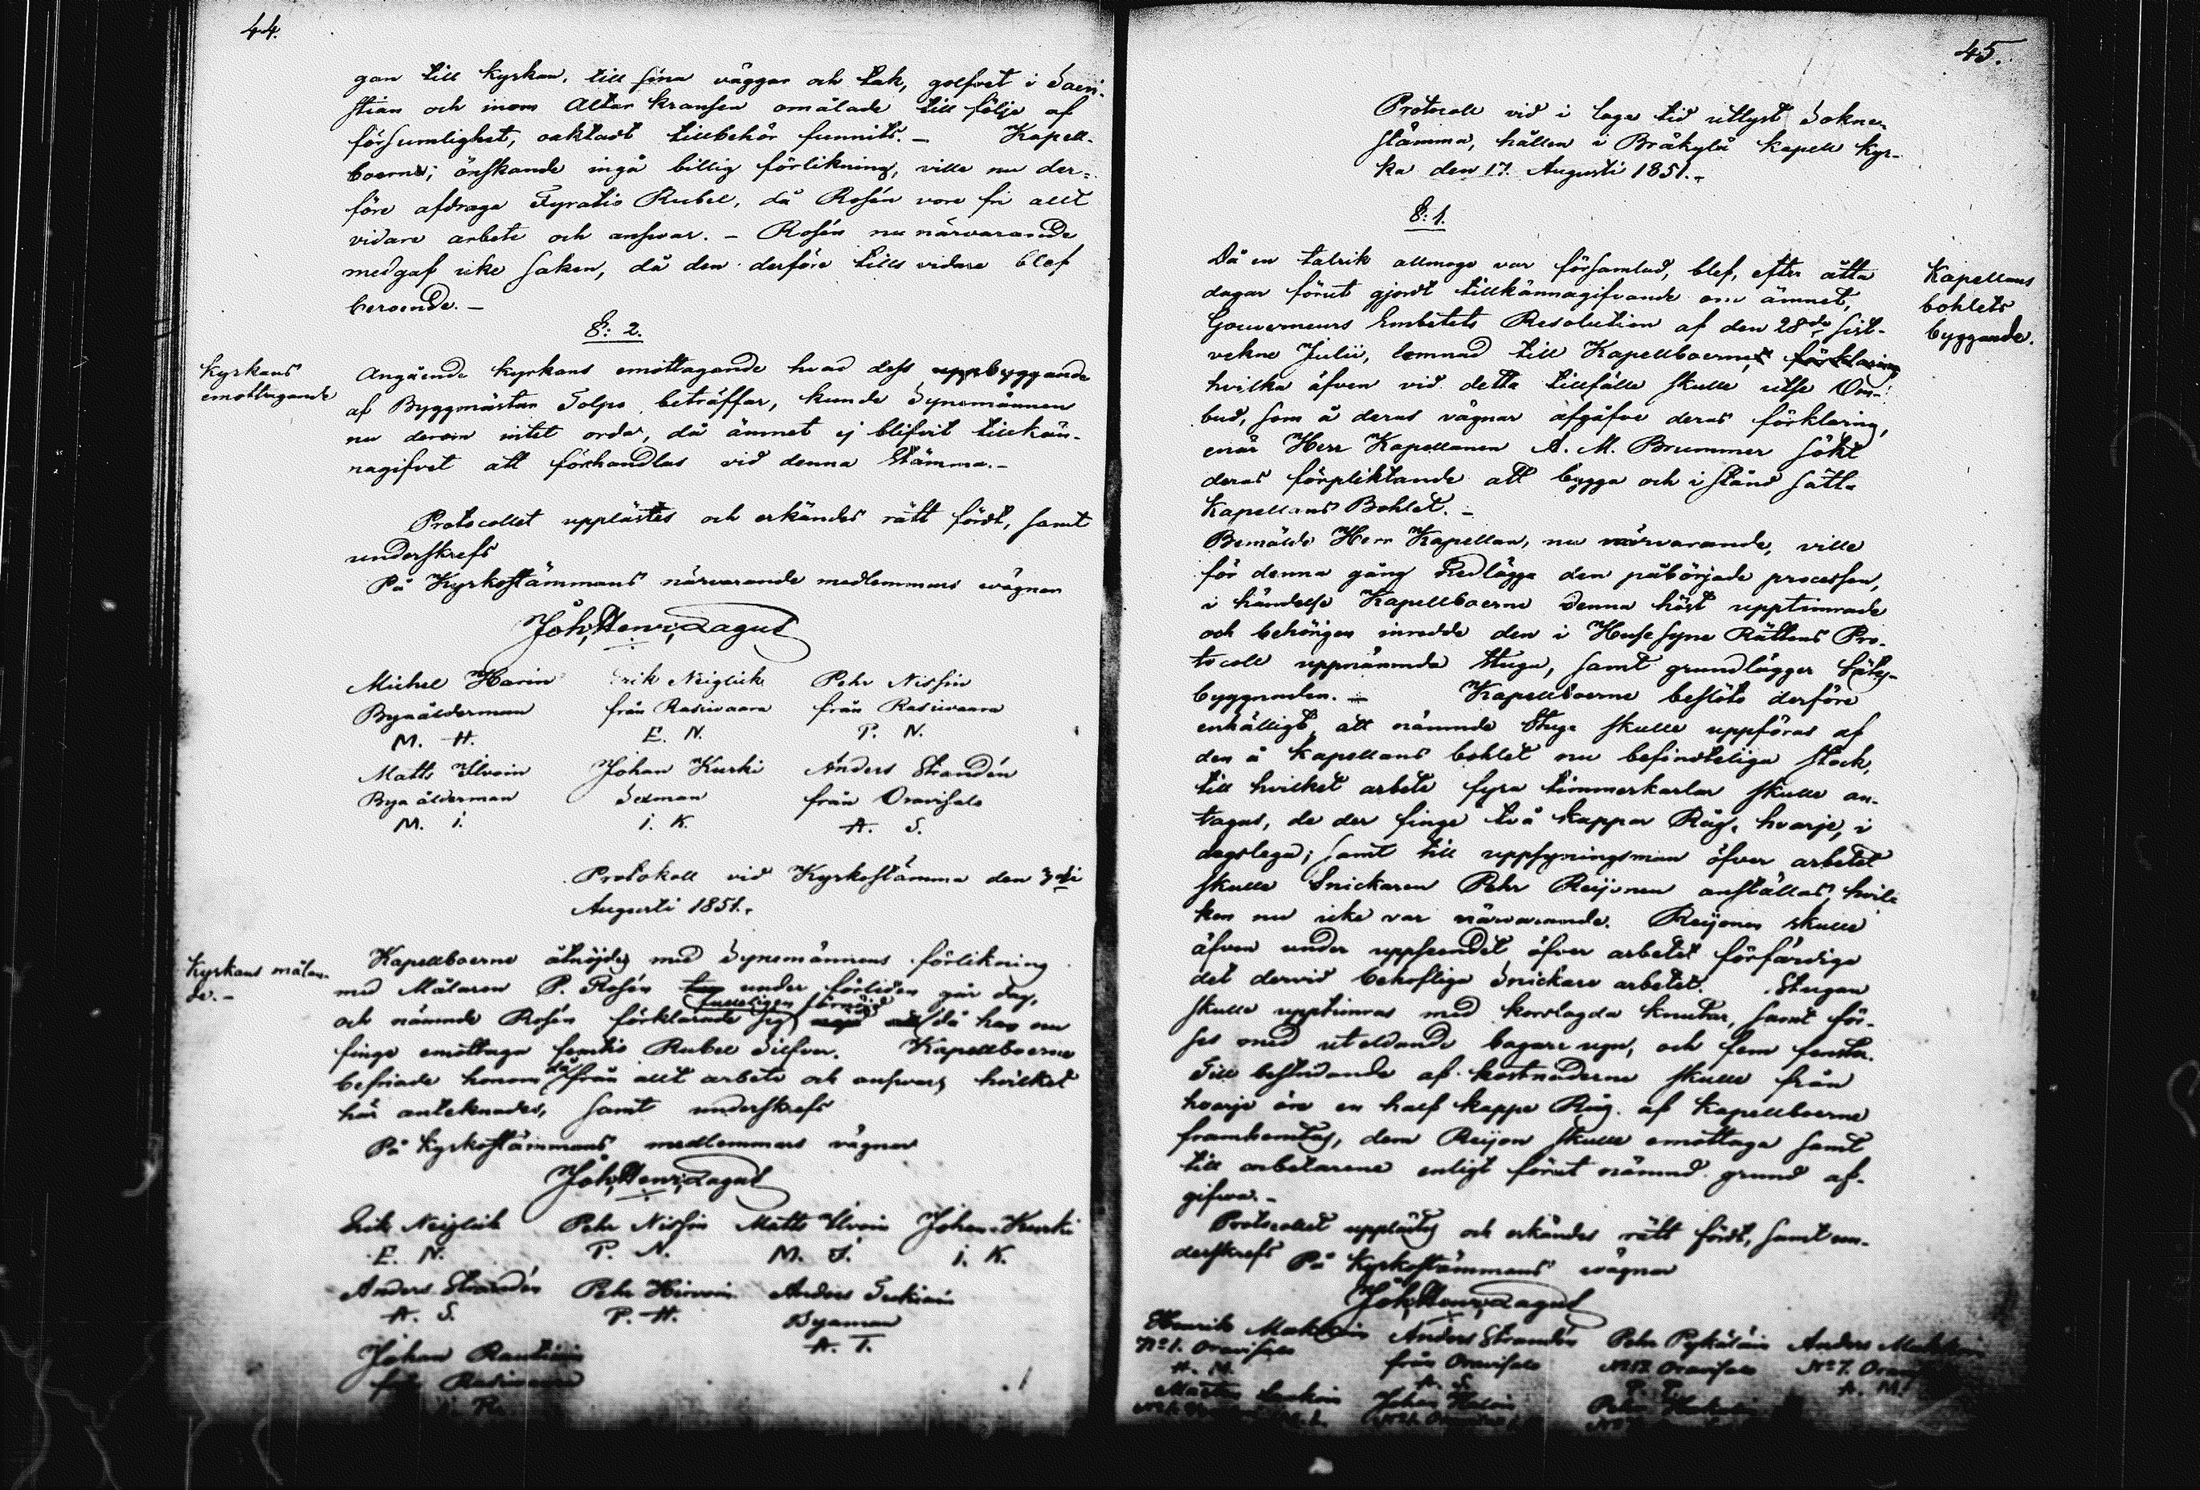 44.
gan till kyrkan, till sina väggar och tak, golfvet i Sacri-
stian och inom Altar kransen omålade till följe af
försumlighet, oaktadt tillbehör funnits. — Kapell-
boerne, önskande ingå billig förlikning, ville nu der-
före afdraga Fyratio Rubel, då Rosén vore fri allt
vidare arbete och answar. — Rosén nu närvarande
medgaf icke saken, då den derföre tills vidare blef
beroende. —
§: 2.
Kyrkans
emottagande
Angående kyrkans emottagande hvad dess uppbyggande
af Byggmästar Tolpo beträffar, kunde Synemännen
nu derom intet orda, då ämnet ej blifvit tillkän-
nagifvet att förhandlas vid denna Stämma. —
Protocollet upplästes och erkändes rätt fördt, samt
underskrefs
På Kyrkostämmans närvarande medlemmars wägnar
Joh. Henr. Lagus
Michel Harin Erik Neiglick Pehr Nissin
Byaålderman från Rasivaara från Rasivaara
M. H. E. N. P. N.
Matts Ilvoin Johan Kurki Anders Strandén
Byaålderman Sexman från Oravisalo
M. I. I. K. A. S.
Protokoll vid Kyrkostämma den 3die
Augusti 1851.
Kyrkans målan-
de. —
Kapellboerne åtnöjdes med Synemännens förlikning
med Målaren P. Rosén under förliden går dag,
fulleligen förnöjd
och nämnde Rosén förklarade sig då han nu
finge emottaga femtio Rubel Silfver. Kapellboerne
befriade honom då från allt arbete och answar, hvilket
här anteknades, samt underskrefs
På Kyrkostämmans medlemmars vägnar
Joh. Henr. Lagus
Erik Neiglick Pehr Nissin Matts Ilvoin Johan Kurki
E. N. P. N. M. I. I. K.
Anders Strandén Pehr Hirvoin Anders
A. S. P. H. Byaman
A. T.
Johan Rautiain
från Rasivaara
45.
Protocoll vid i laga tid utlyst Sokne-
stämma, hållen i Bråkylä kapell kyr-
ka den 17. Augusti 1851. —
§: 1.
Kapellans
bohlets
byggande.
Då en talrik allmoge var församlad, blef, efter åtta
dagar förut gjordt tillkännagifvande om ämnet,
Gouverneurs Embetets Resolution af den 28de sist-
vekne Julii, lemnad till Kapellboerne, förklaring
hvilka äfven vid detta tillfälle skulle utse Om-
bud, som å deras vägnar afgåfve deras förklaring,
enär Herr Kapellanen A. M. Brummer sökt
deras förpliktande att bygga och i stånd sätta
Kapellans Bohlet. —
Bemälde Herr Kapellan, nu närvarande, ville
för denna gång nedlägga den påbörjade processen,
i händelse Kapellboerne denna höst upptimrade
och behörigen inredde den i Husesyne Rättens Pro-
tocoll uppnämnda Stuga, samt grundlägger
byggnaden. — Kapellboerne beslöto derföre
enhälligt, att nämnde Stuga skulle uppföras af
den å Kapellans bohlet nu befindteliga stock,
till hvilket arbete fyra timmerkarlar skulle an-
tagas, de der finge två kappar Råg, hvarje, i
dagslega; samt till uppsyningsman öfver arbetet
skulle Snickaren Pehr Reijonen anställas, hvil-
ken nu icke var närvarande. Reijonen skulle
äfven under uppseendet öfver arbetet förfärdiga
det dervid behöfliga Snickare arbetet. Stugan
skulle upptimras med korslagda knutar, samt för-
ses med uteldande bagare ugn, och fem fenster.
Till bestridande af kostnaderne skulle från
hvarje öre en half kappe Råg af Kapellboerne
frambemtas, dem Reijon skulle emottaga samt
till arbetarene enligt förut nämnd grund af-
gifwa. —
Protocollet upplästes och erkändes rätt fördt, samt un-
derskrefs På Kyrkostämmans wägnar
Joh. Henr. Lagus
Henrik Makkoin Anders Strandén Pehr Pykäläin Anders Makkoin
No 1. Oravisalo från Oravisalo No 12 Oravisalo No 7.
H. M. A. S. P. P. A. M.